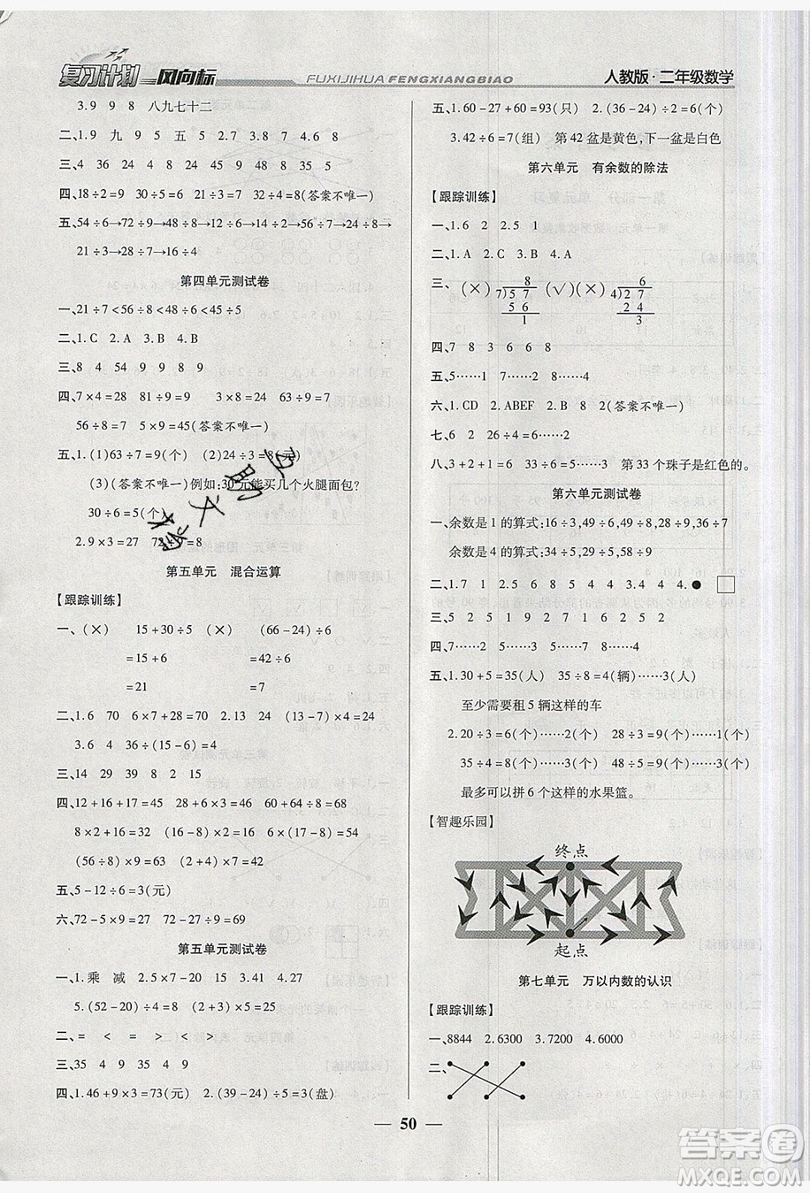 复习计划 风向标
FUXIJIHUA FENGXIANGBIAO
人教版·二年级数学
3.9 9 8 八九七十二
二、1.9 九 9 5 五 2.7 3.8 4.7 8
三、4 36 9 2 7 54
四、18÷2=9 27÷3=9(答案不唯一)
五、54÷6→72÷9→48÷6→12÷6→24÷8→
21÷3→27÷3→16÷4
第四单元测试卷
一、21÷7<56÷8<48÷6<45÷5
二、1.C 2.A 3.D 4.B
三、8 4 54 9 9 8 9
四、7×4=28 81÷9=9 3×8=24 63÷9=7
56÷8=7 5×9=45(答案不唯一)
五、1.(1)63÷7=9(个) (2)24÷3=8(元)
(3)(答案不唯一)例如:30元能买几个火腿面包?
30÷6=5(个)
2.9×3=27 72÷9=8
第五单元 混合运算
【跟踪训练】
一、(×) 15+30÷5 (×) (66-24)÷6
=15+6 =42÷6
=21 =7
二、1.6 70 6×7+28=70 2.13 24 (13-7)×4=24
3.6 4 54÷(15-9)=9
三、14 29 39 9 15 2
四、12+16+17=45 28+63÷9=35 6+8×8=70
8×2+16=32 6×9-22=32 6×(17-8)=54
五、5-12÷6=3(元)
六、72-5×9=27 72-27÷9=69
第五单元测试卷
一、1.乘 减 2.5×7-20=15 3.41 4.27
5.(52-20)÷4=8 6.7×(20-14)=42
二、= < = > <
三、35 54 9 34 20 9
四、1.46+9×3=73(元) 2.(39-24)÷5=3(盘)
五、1.60-27+60=93(只) 2.36÷(3×2)=6(个)
3.42÷6=7(组) 第42盆是黄色,下一盆是白色
第六单元 有余数的除法
【跟踪训练】
一、1.6 2 2.5 1
二、1.A 2.C 3.B 4.A
三、(×) 8 (√)(×) 6
7)57 4)27
56 24
1 3
四、7 8 3 6 6 8
五、5……1 7……2 6……3
六、1.CD 2.ABEF 3.B(答案不唯一)
七、6 2 7 44÷7=6……2
八、3+2+1=6 33÷6=5……3 第33个珠子是红色的。
第六单元测试卷
一、余数是1的算式:16÷3,49÷6,49÷8,28÷9,36÷7
余数是4的算式:34÷5,59÷5,52÷8,58÷9
二、1.7 1 2.5 8 44 3.4 4.4 4.●
三、1.B 2.D 3.D 4.C
四、7……5 7……5 8……4
五、1.30+5=35(人) 35÷8=4(辆)……3(人)
至少需要租5辆这样的车
2.20÷3=6(个)……2(个) 32÷4=8(个)
45÷6=7(个)……3(个)
最多可以拼6个这样的水果篮。
【智趣乐园】
终点
起点
第七单元 万以内数的认识
【跟踪训练】
一、8844 2.6300 3.7200 4.6000
二、
50
答案圈
MXQE.COM